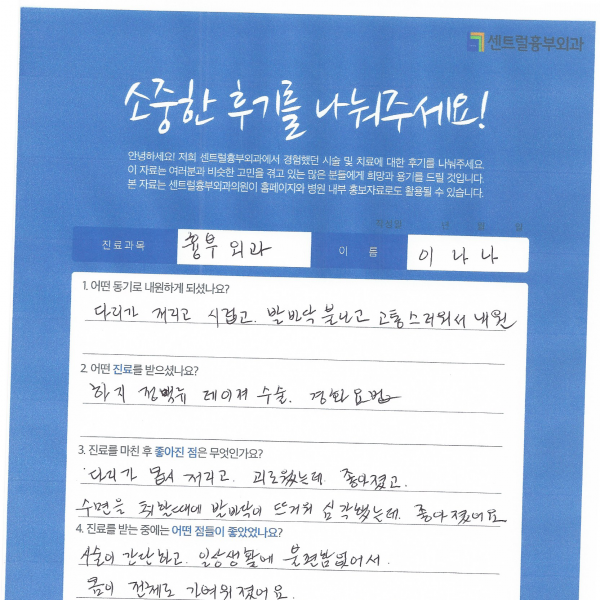 센트럴흉부외과
소중한 후기를 나눠주세요!
안녕하세요! 저희 센트럴흉부외과에서 경험했던 시술 및 치료에 대한 후기를 나눠주세요.
이 자료는 여러분과 비슷한 고민을 겪고 있는 많은 분들에게 희망과 용기를 드릴 것입니다.
본 자료는 센트럴흉부외과의원이 홈페이지와 병원 내부 홍보자료로도 활용될 수 있습니다.
작성일 년 월 일
진료과목 흉부외과 이 름 이나나
1. 어떤 동기로 내원하게 되셨나요?
다리가 저리고 시렵고. 발바닥 불나고 고통스러워서 내원
2. 어떤 진료를 받으셨나요?
하지 정맥류 레이져 수술. 경화요법
3. 진료를 마친 후 좋아진 점은 무엇인가요?
다리가 몹시 저리고. 괴로웠는데. 좋아졌고.
수면을 취할때에 발바닥이 뜨거워 심각했는데. 좋아졌어요
4. 진료를 받는 중에는 어떤 점들이 좋았었나요?
수술이 간단하고. 일상생활에 불편함없어서.
몸이 전체로 가벼워졌어요.